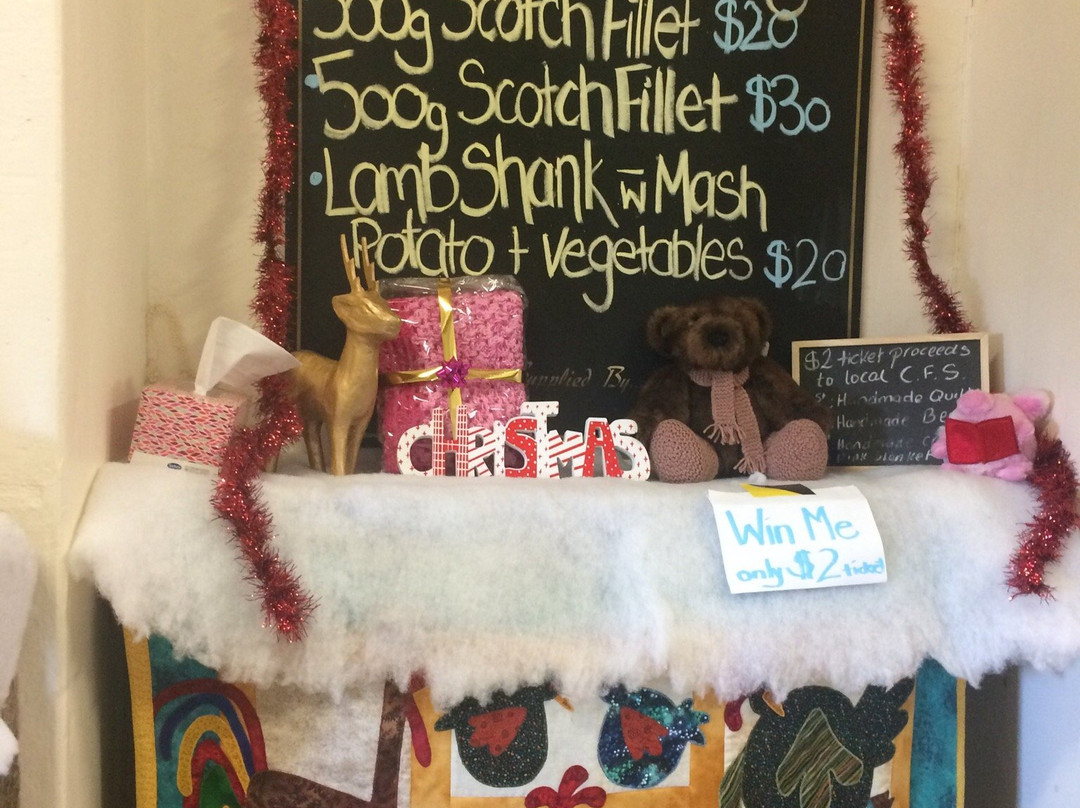 300g Scotch Fillet $20
500g Scotch Fillet $30
Lamb Shank w Mash
Potato + Vegetables $20
Supplied By
CHRISTMAS
$2 ticket proceeds
to local C.F.S.
Handmade
Handmade
Handmade
Win Me
only $2 ticket